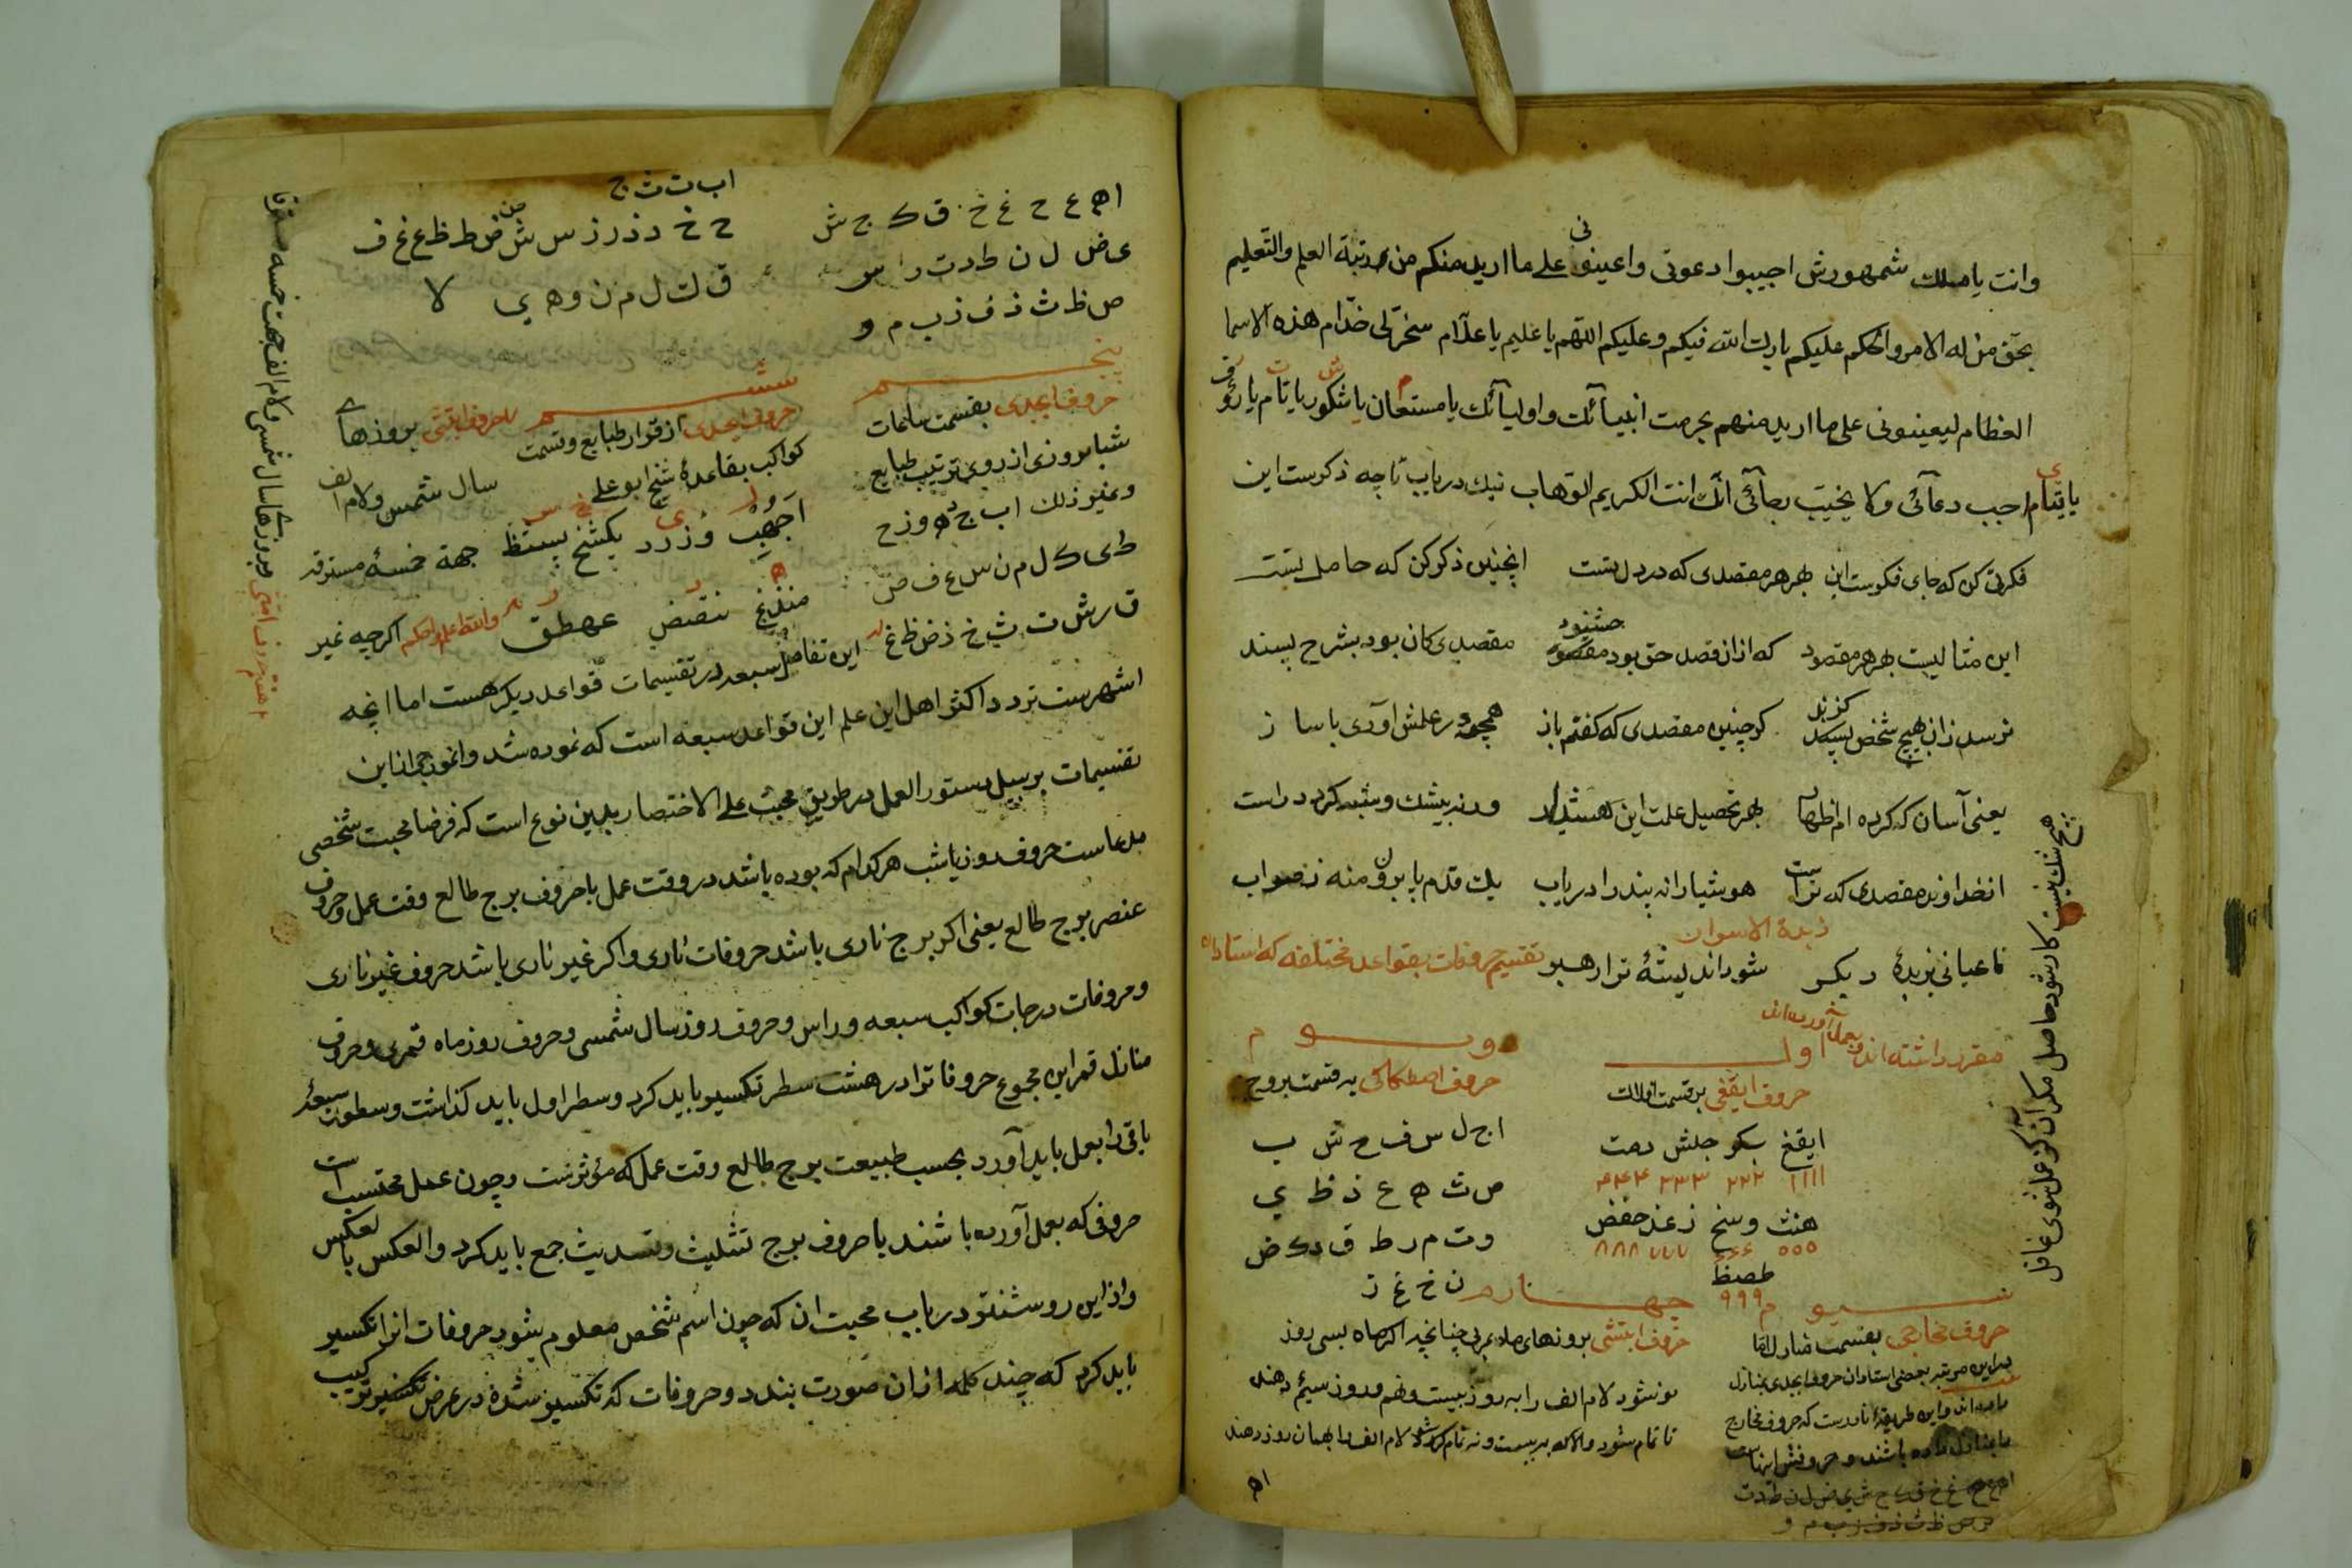 وانت یا ملک شمهورش اجیبوا دعوتی واعینونی علی ما ارید منکم من مرتبة العلم والتعلیم
بحق من له الامر والحکم علیکم بارک الله فیکم وعلیکم اللهم یا علیم یا علّام سخّرلی خدّام هذه الاسما
العظام لیعینونی علی ما ارید منهم بحرمت انبیآئک واولیآئک یا مستعان یا شکور یا تام یا رؤف
اجب دعآئی ولا یخیّب رجآئی انّک انت الکریم الوهاب نیک دریاب تا چه ذکرست این
فکرتی کن که جای فکرست این بهر هر مقصدی که در دل تست اینچنین ذکر کن که حاصل تست
این مثالیست بهر هر مقصود که از ان قصد حق بود خشنود مقصدی کان بود بشرح پسند
نرسد زان بهیچ شخص گزند کر چنین مقصدی که کفتم باز همچو در علمش اوری با ساز
یعنی آسان که کرده ام اظهار بهر تحصیل علت این هشدار ورنه بیشک وشبه کردد راست
از خداوند مقصدی که تراست هوشیارانه پند را دریاب یک قدم پا برون منه ز صواب
تا عیانی زبدهٔ دیکر شود اندیشهٔ ترا رهبر تقسیم حروفات بقواعد مختلفه که استادان
زبدة الاسرار
مقرر داشته اند وبعمل آورده اند
اول
حروف ایقغی بر قسمت افلاک
ایقغ بکر جلش دمت
۱۱۱۱ ۲۲۲ ۳۳۳ ۴۴۴
هنث وسخ زعذ حفض
۵۵۵ ۶۶۶ ۷۷۷ ۸۸۸
طصظ
۹۹۹
دویم
حروف اصطکاکی به قسمت بروج
ا ج ل س ف ح ش ب
ص ث ه ع ذ ظ ی
و ت م ر ط ق د ک ض
ن خ غ ز
سیوم
حروف مخارجی بقسمت منازل اما
بدین مرتبه بعضی استادان حروف ابجدی بمنازل
داده اند واین طریقهٔ نادرست که حروف مخارج
با منازل داده باشند وحروفش اینهاست
چهارم
حروف ابتثی بروزهای ماه عربی چنانچه اکر ماه بسی روز
نرشود لام الف را به روز بیست ونهم وروز سیم دهند
تا تمام شود والا که به بیست ونه تمام کردد لام الف را بهمان روز دهند
هیچ شک نیست کار شود حاصل مکر آنکه ز عمل شوی غافل
ا ه ع ح غ خ ق ک ج ش
ی ض ل ن ط د ت ر ا س
ص ظ ث ذ ف ز ب م و
ا ب ت ث ج
ح خ د ذ ر ز س ش ص ض ط ظ ع غ ف
ق ک ل م ن و ه ی لا
پنجم
حروف ابجدی بقسمت ساعات
شباروزی از روی ترتیب طبایع
وغیر ذلک ا ب ج د ه و ز ح
ط ی ک ل م ن س ع ف ص
ق ر ش ت ث خ ذ ض ظ غ
ششم
حروف ابجدی از قرار طبایع وقسمت
کواکب بقاعدهٔ شیخ ابو علی
هفتم حروف ابتثی بروزهای
سال شمسی ولام الف
جهة خمسهٔ مسترقه
والله اعلم واحکم اکرچه غیر
این تفاصیل سبعه در تقسیمات قواعد دیکر هست اما آنچه
اشهرست نزد اکثر اهل این علم این قواعد سبعه است که نموده شد وانموذجی از این
تقسیمات بر سبیل دستور العمل در طریق محبت علی الاختصار بدین نوع است که فرضا محبت شخصی
مدعاست حروف روز یا شب هر کدام که بوده باشد در وقت عمل با حروف برج طالع وقت عمل وحروف
عنصر برج طالع یعنی اکر برج ناری باشد حروفات ناری واکر غیر ناری باشد حروف غیر ناری
وحروفات درجات کواکب سبعه وراس وحروف روز سال شمسی وحروف روز ماه قمری وحروف
منازل قمر این مجموع حروفات را در هشت سطر تکسیر باید کرد وسطر اول باید کذاشت وسطور سبعهٔ
باقی را بعمل باید آورد بحسب طبیعت برج طالع وقت عمل که مؤثرست وچون عمل محبتست
حروفی که بعمل آورده باشند با حروف برج تثلیث وتسدیث جمع باید کرد والعکس بالعکس
واز این روشنتر در باب محبت ان که چون اسم شخص معلوم شود حروفات انرا تکسیر
باید کرد که چند کلمه از ان صورت بندد وحروفات که تکسیر شده در عرض تکسیر ترکیب